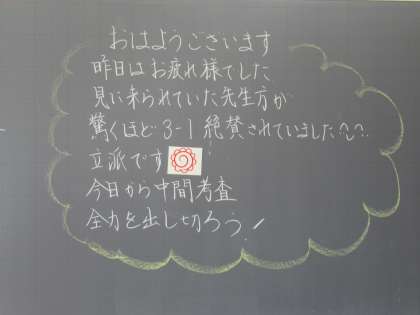 おはようございます
昨日はお疲れ様でした
見に来られていた先生方が
驚くほど3-1絶賛されていました
立派です
今日から中間考査
全力を出し切ろう!